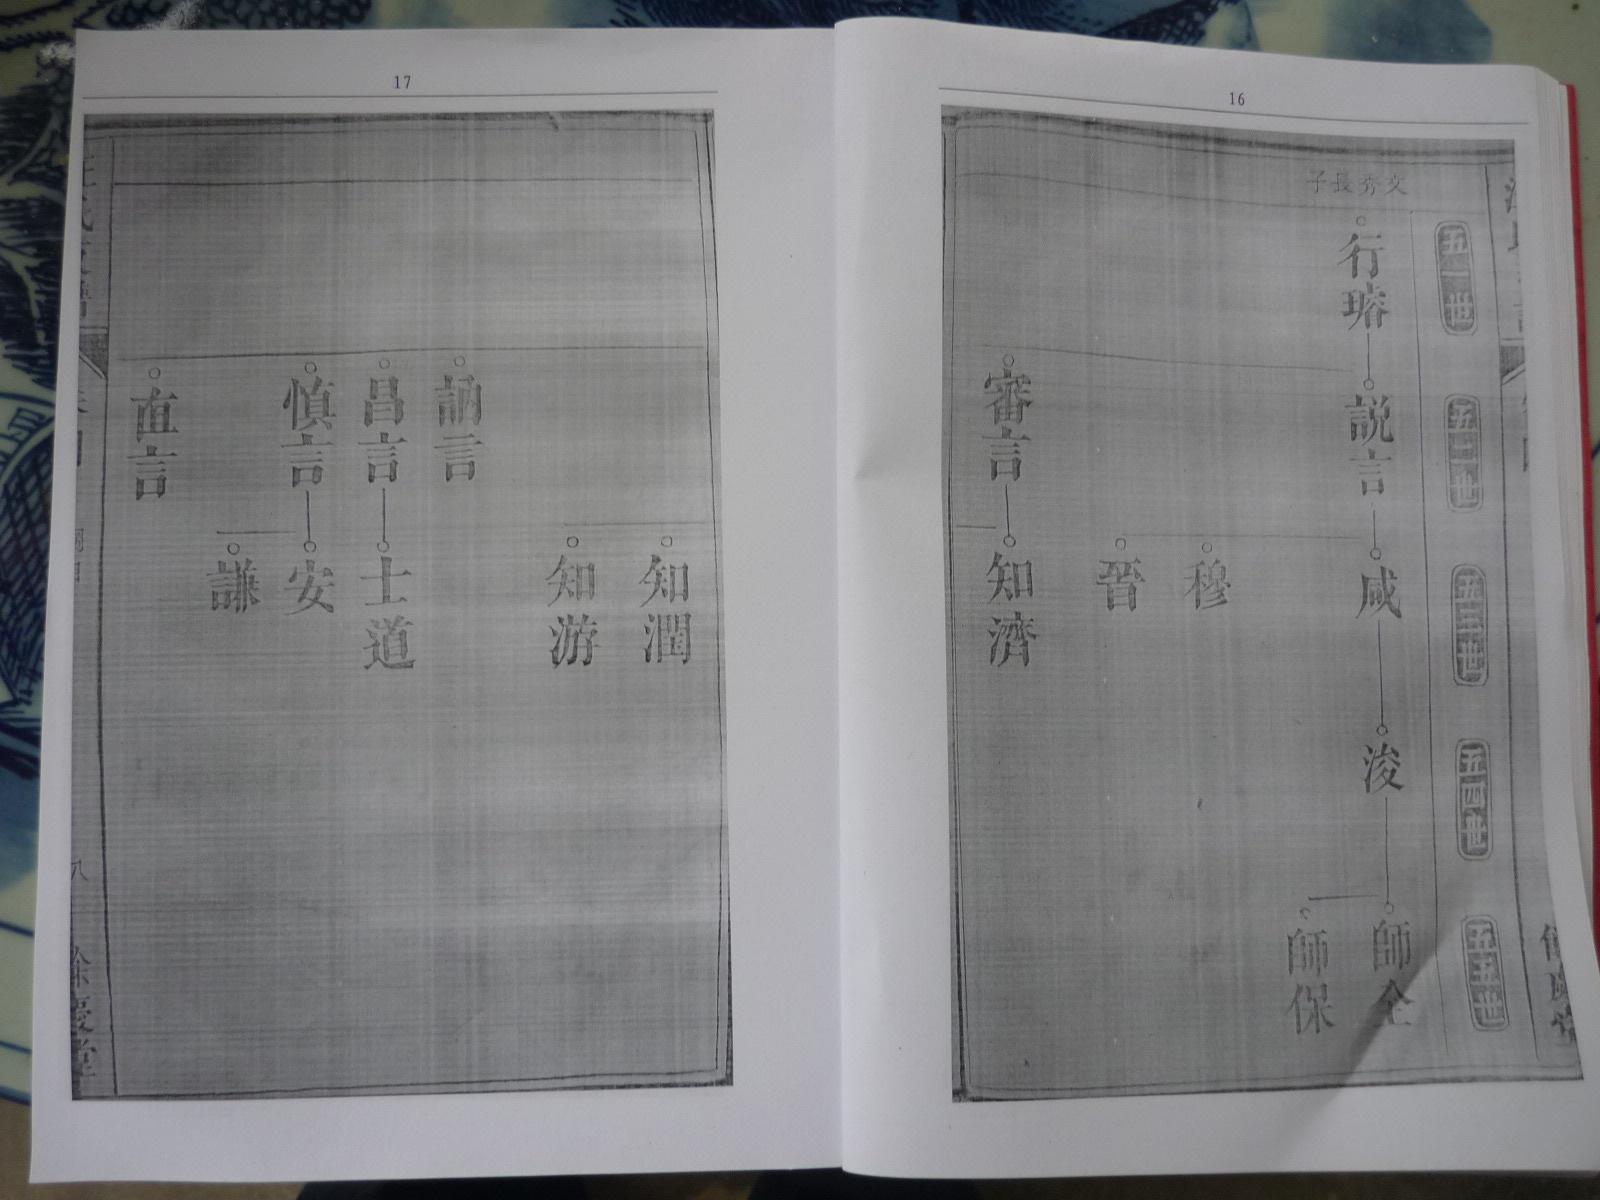 16
文秀長子
五一世
五二世
五三世
五四世
五五世
行璿
説言
咸
浚
師全
師保
穆
晉
審言
知濟
17
知潤
知游
訥言
昌言
士道
慎言
安
謙
直言
餘慶堂